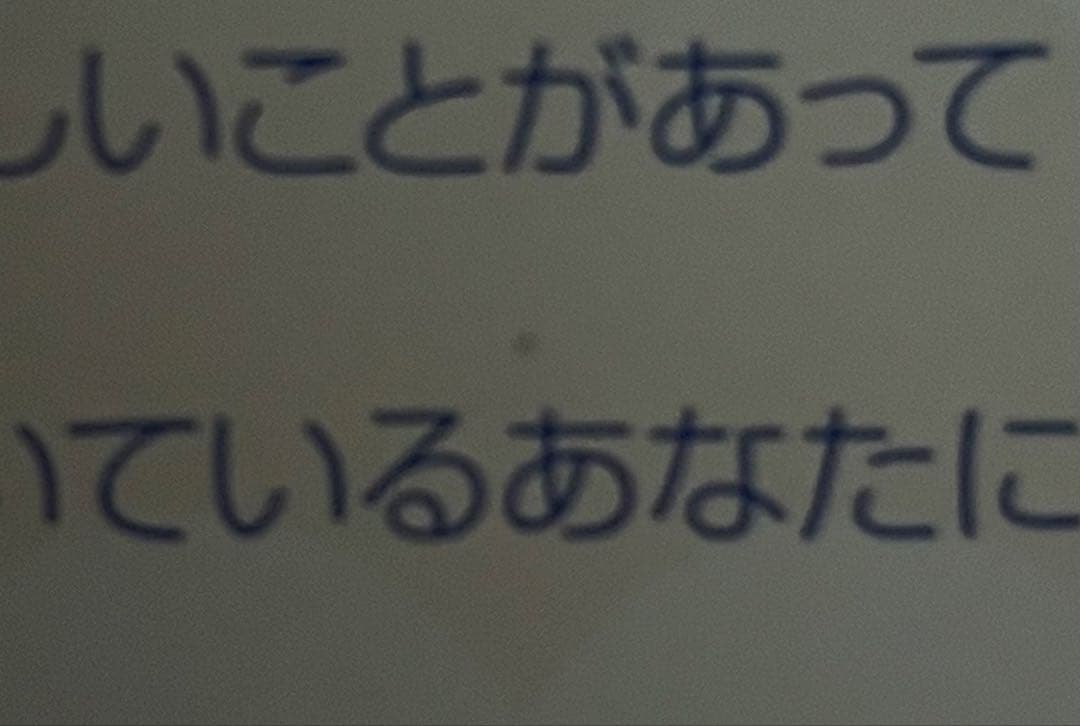 しいことがあって
いているあなたに